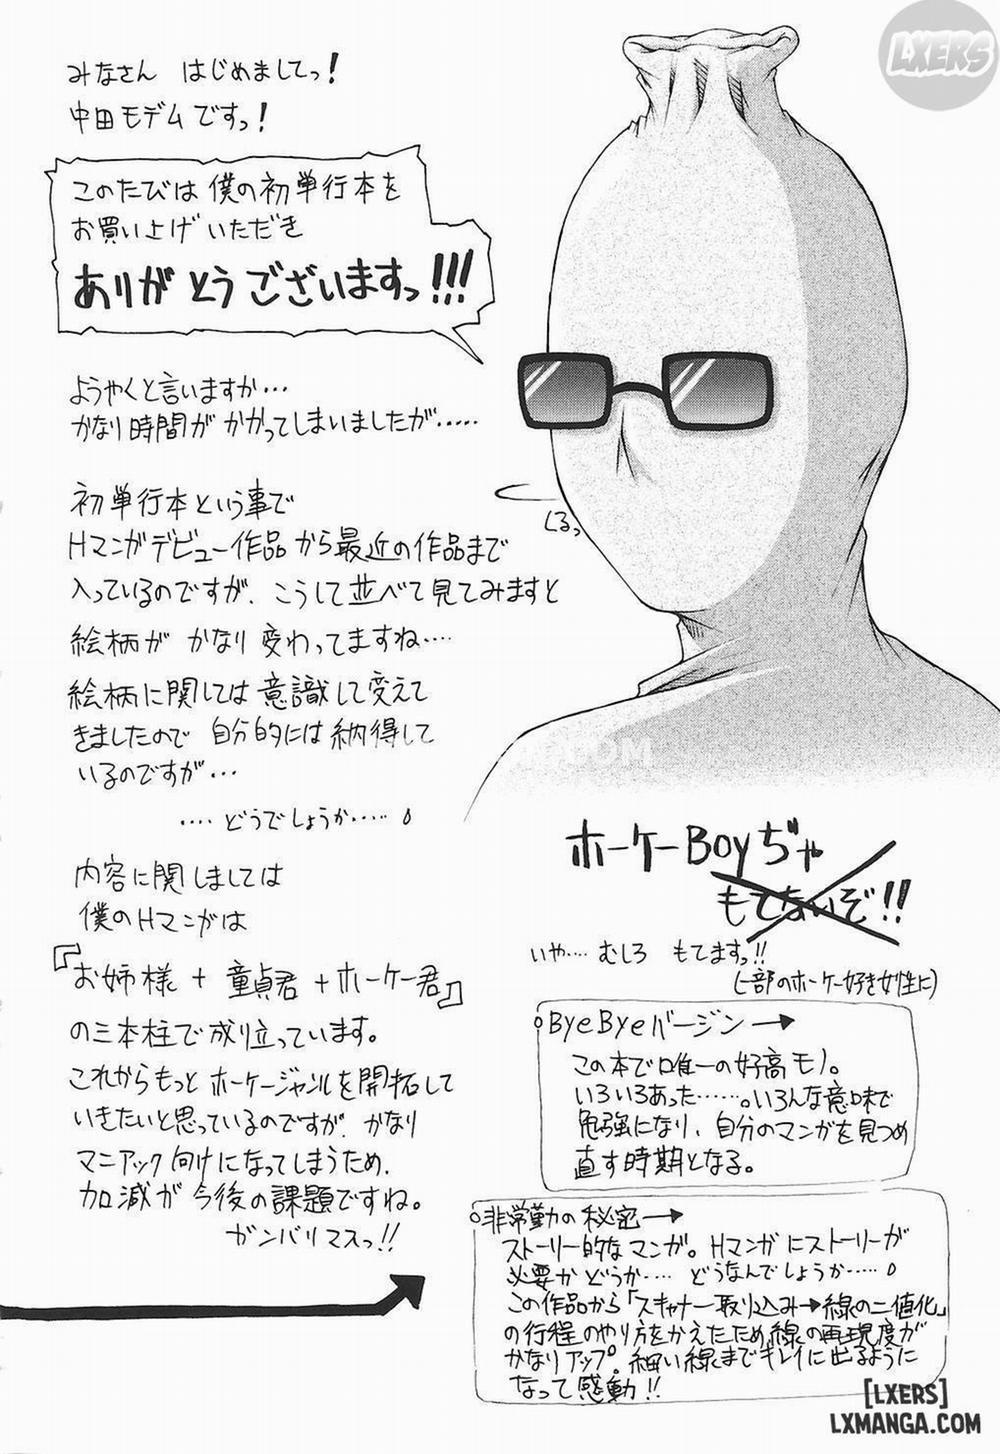 みなさん はじめましてっ!
中田モデムですっ!
このたびは 僕の初単行本を
お買い上げ いただき
ありがとうございますっ!!!
ようやくと言いますか…
かなり時間が かかってしまいましたが……
初単行本という事で
Hマンガデビュー作品から最近の作品まで
入っているのですが、こうして並べて見てみますと
絵柄が かなり変わってますね…
絵柄に関しては意識して変えて
きましたので 自分的には納得して
いるのですが…
…. どうでしょうか……
内容に関しましては
僕のHマンガは
『お姉様 + 童貞君 + ホーケー君』
の三本柱で成り立っています。
これからもっと ホーケージャンルを開拓して
いきたいと思っているのですが、かなり
マニアック向けになってしまうため、
加減が今後の課題ですね。
ガンバリマスっ!!
くるっ
ホーケーBoyぢゃ
もてないぞ!!
いや…. むしろ もてますっ!!
(一部のホーケー好き女性に)
ByeByeバージン→
この本で唯一の好高モノ。
いろいろあった……。いろんな意味で
勉強になり、自分のマンガを見つめ
直す時期となる。
非常勤の秘密→
ストーリー的なマンガ。Hマンガにストーリーが
必要かどうか…. どうなんでしょうか……
この作品から「スキャナー取り込み→線の二値化」
の行程のやり方をかえたため、線の再現度が
かなりアップ。細い線までキレイに出るように
なって感動!!
LXERS
[LXERS]
LXMANGA.COM